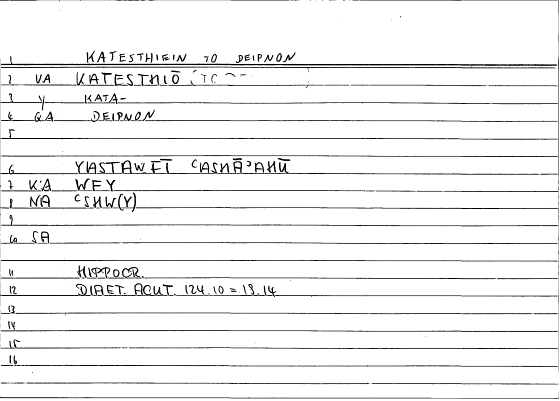 1 KATESTHIEIN TO DEIPNON
2 VA KATESTHIŌ (TO
3 Y KATA-
4 GA DEIPNON
5
6 YASTAWFĪ ʿASHĀʾAHŪ
7 KA WFY
8 NA ʿSHW(Y)
9
10 SA
11 HIPPOCR.
12 DIAET. ACUT. 124.10 = 13.14
13
14
15
16